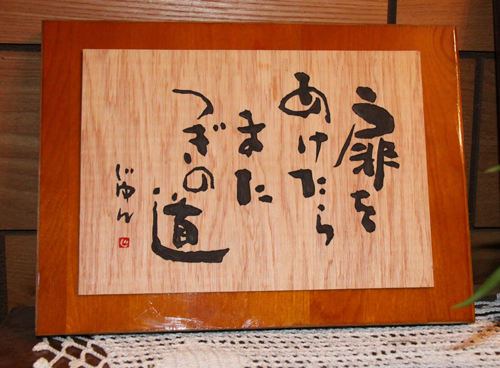 扉を
あけたら
また
つぎの
道
じゅん